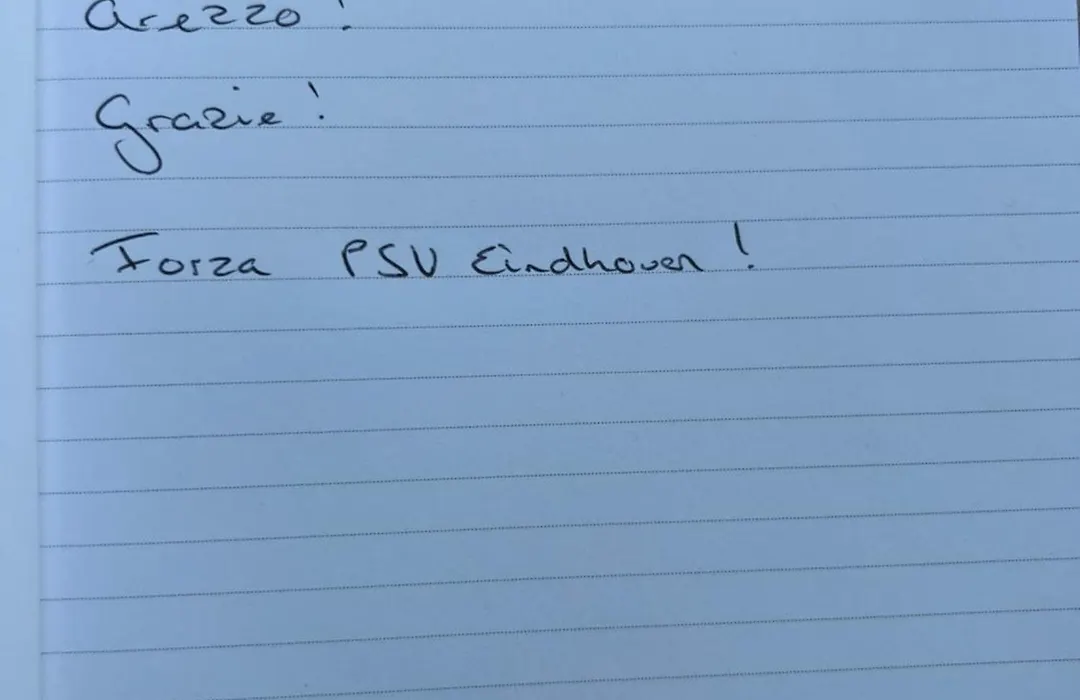 Arezzo!
Grazie!
Forza PSV Eindhoven!